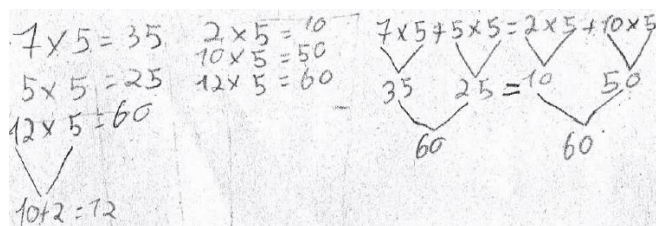 7 × 5 = 35
5 × 5 = 25
12 × 5 = 60
10+2 = 12
2 × 5 = 10
10 × 5 = 50
12 × 5 = 60
7 × 5 + 5 × 5 = 2 × 5 + 10 × 5
35 25 = 10 50
60 60